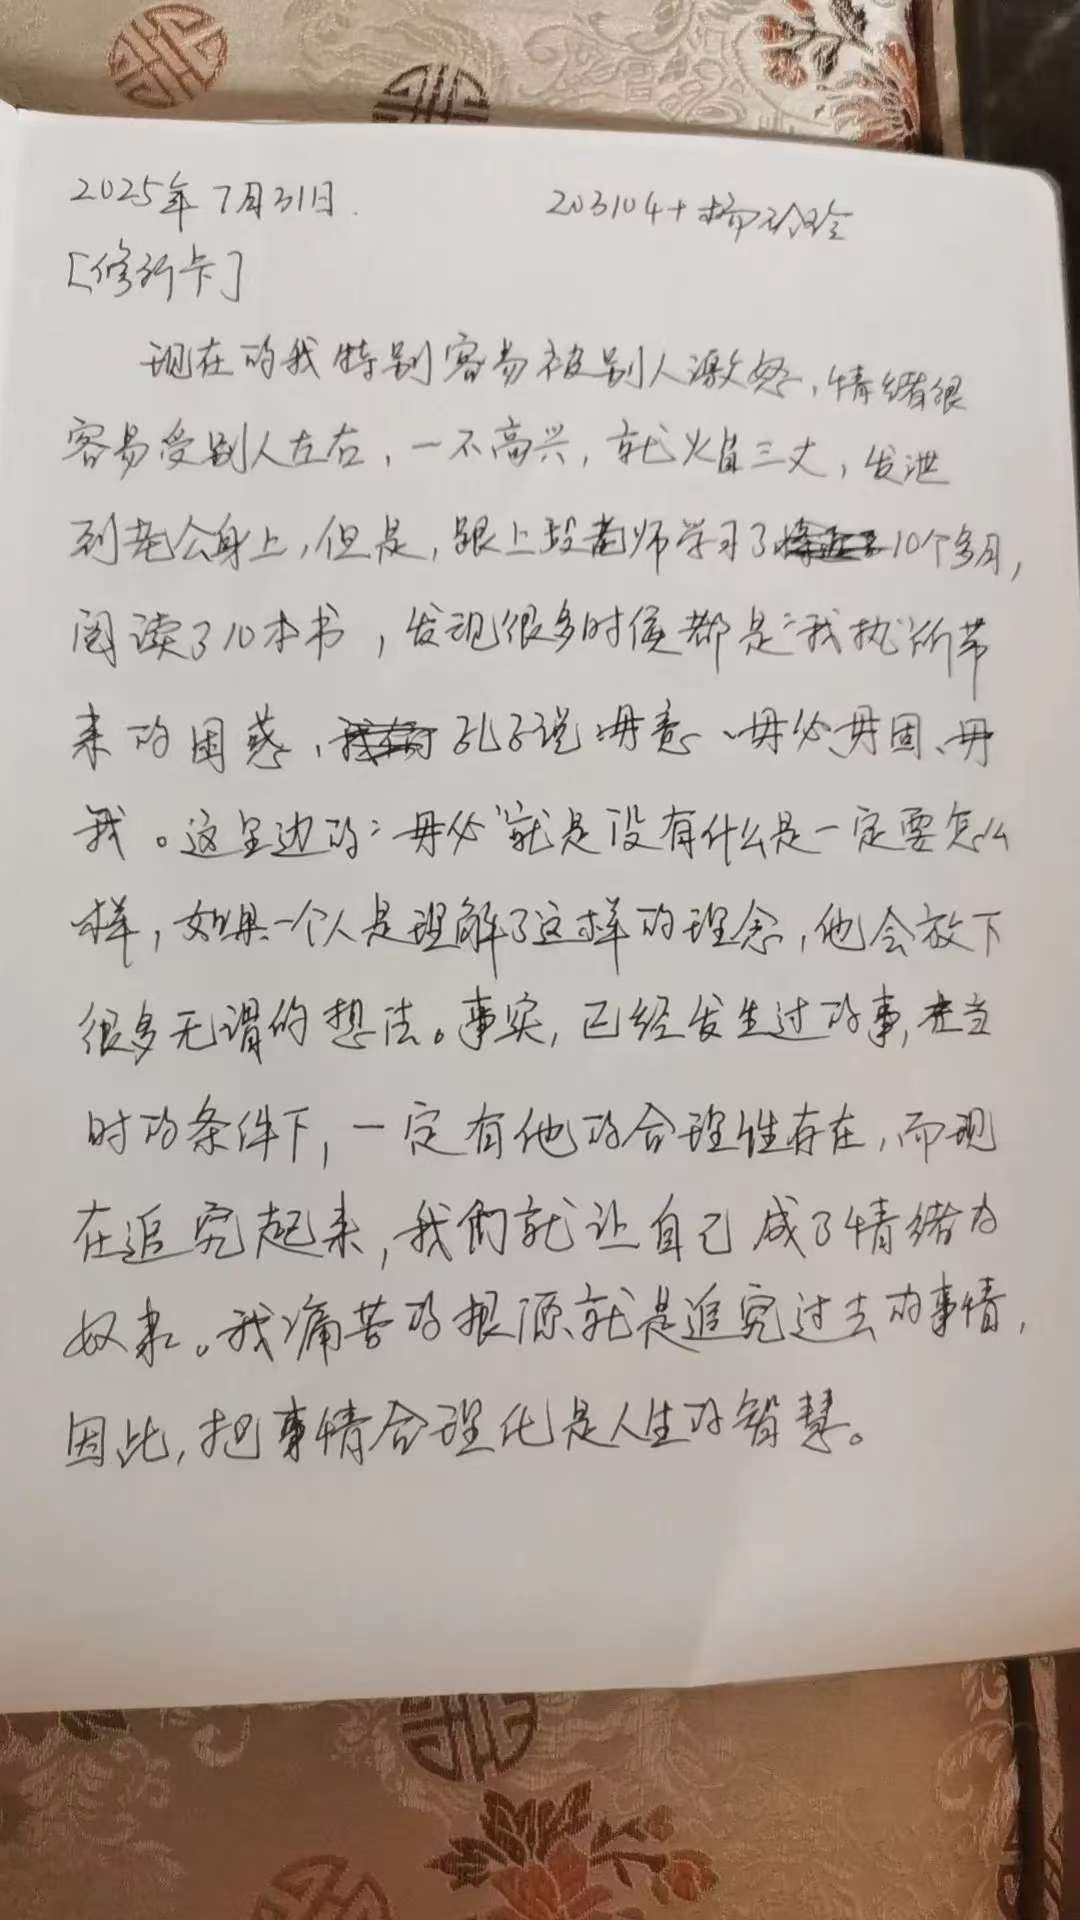 2025年7月31日.
203104+杨玲玲
[修行卡]
现在的我特别容易被别人激怒,情绪很
容易受别人左右,一不高兴,就火冒三丈,发泄
到老公身上,但是,跟上段老师学习了10个多月,
阅读了10本书,发现很多时侯都是“我执”所带
来的困惑,孔子说:毋意、毋必、毋固、毋
我。这里边的“毋必”就是没有什么是一定要怎么
样,如果一个人是理解了这样的理念,他会放下
很多无谓的想法。事实,已经发生过的事,在当
时的条件下,一定有他的合理性存在,而现
在追究起来,我们就让自己成了情绪的
奴隶。我痛苦的根源就是追究过去的事情,
因此,把事情合理化是人生的智慧。